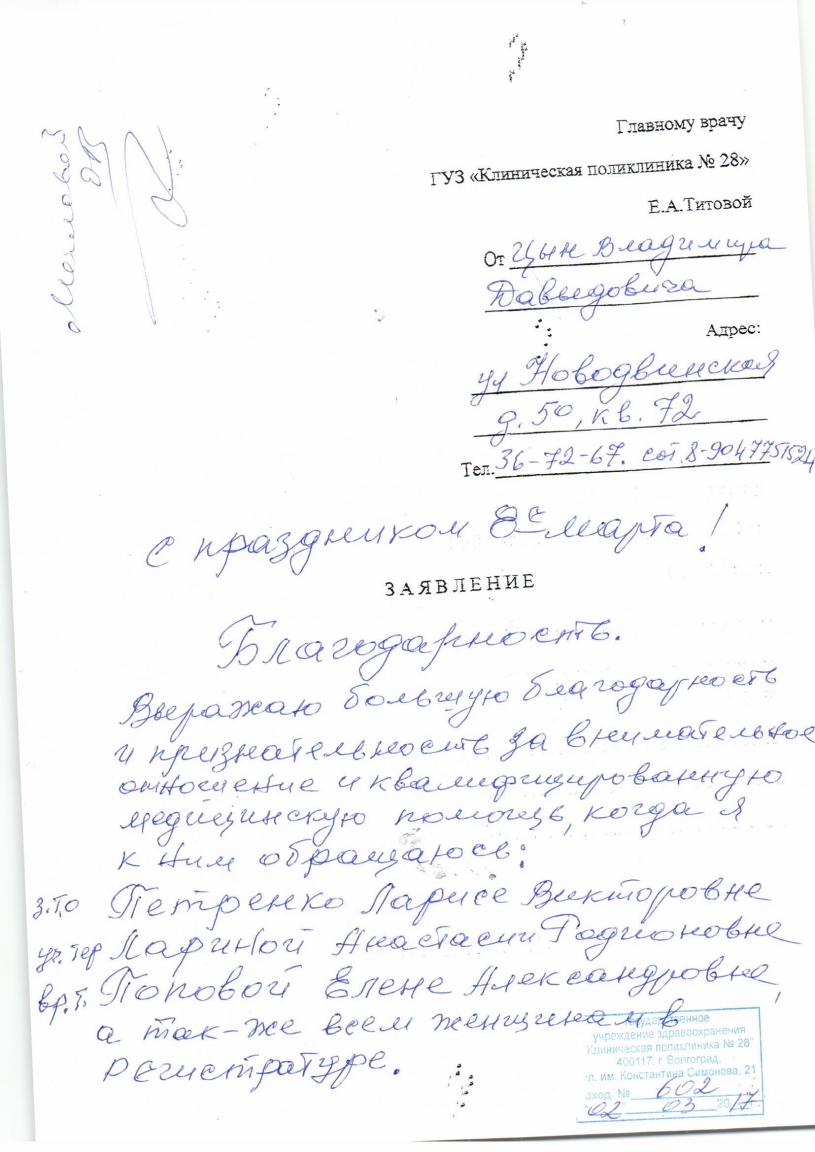 Главному врачу
ГУЗ «Клиническая поликлиника № 28»
Е.А.Титовой
От Цын Владимира
Давыдовича
Адрес:
ул Новодвинская
д. 50, кв. 72
Тел. 36-72-67. сот. 8-9047751524
с праздником 8е марта!
ЗАЯВЛЕНИЕ
Благодарность.
Выражаю большую благодарность
и признательность за внимательное
отношение и квалифицированную
медицинскую помощь, когда я
к ним обращаюсь:
з.т.о Петренко Ларисе Викторовне
уч. тер Лариной Анастасии Родионовне
вр. т. Поповой Елене Александровне,
а так-же всем женщинам в
регистратуре.
Государственное
учреждение здравоохранения
"Клиническая поликлиника № 28"
400117, г. Волгоград,
ул. им. Константина Симонова, 21
вход. № 602
02 03 2017